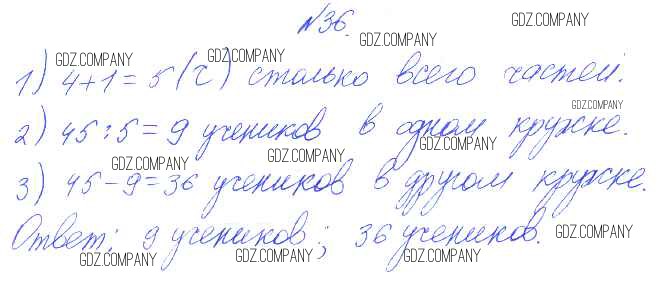 №36.
1) 4+1=5 (ч) столько всего частей.
2) 45:5=9 учеников в одном кружке.
3) 45-9=36 учеников в другом кружке.
Ответ: 9 учеников; 36 учеников.
GDZ.COMPANY
GDZ.COMPANY
GDZ.COMPANY
GDZ.COMPANY
GDZ.COMPANY
GDZ.COMPANY
GDZ.COMPANY
GDZ.COMPANY
GDZ.COMPANY
GDZ.COMPANY
GDZ.COMPANY
GDZ.COMPANY